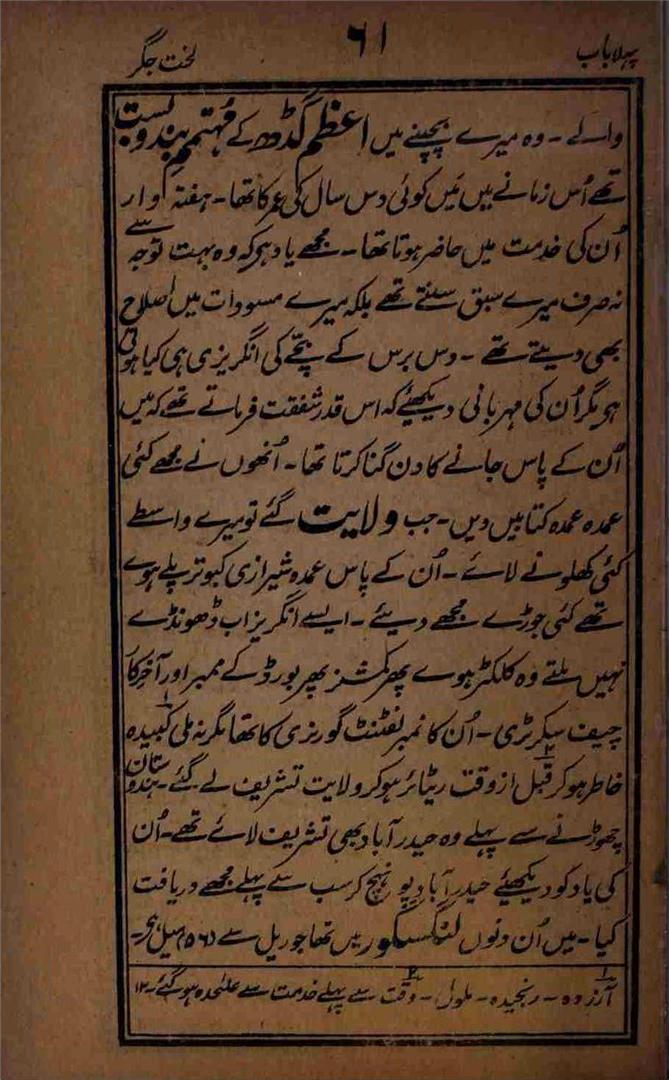 پہلا باب ۶۱ لخت جگر
والے۔ وہ میرے بچپنے میں اعظم گڈھ کے مُہتمم بندوبست
تھے اُس زمانے میں مَیں کوئی دس سال کی عمر کا تھا۔ ہفتہ وار
اُن کی خدمت میں حاضر ہوتا تھا۔ مجھے یاد ہی کہ وہ بہت توجہ سے
نہ صرف میرے سبق سنتے تھے بلکہ میرے مسودات میں اصلاح
بھی دیتے تھے۔ دس برس کے بچّے کی انگریزی ہی کیا ہوتی
ہی مگر اُن کی مہربانی دیکھئے کہ اس قدر شفقت فرماتے تھے کہ میں
اُن کے پاس جانے کا دن گنا کرتا تھا۔ اُنھوں نے مجھے کئی
عمدہ عمدہ کتابیں دیں۔ جب ولایت گئے تو میرے واسطے
کئی کھلونے لائے۔ اُن کے پاس عمدہ شیرازی کبوتر پلے ہوے
تھے کئی جوڑے مجھے دیئے۔ ایسے انگریز اب ڈھونڈے
نہیں ملتے وہ کلکٹر ہوے پھر کمشنر پھر بورڈ کے ممبر اور آخر کار
چیف سیکرٹری۔ اُن کا نمبر لفٹنٹ گورنری کا تھا مگر نہ ملی کبیدہ ۱
خاطر ہو کر قبل از وقت ۲ ریٹائر ہو کر ولایت تشریف لے گئے۔ ہندوستان
چھوڑنے سے پہلے وہ حیدرآباد بھی تشریف لائے تھے۔ اُن
کی یاد کو دیکھئے حیدرآباد پہونچ کر سب سے پہلے مجھے دریافت
کیا۔ میں اُن دنوں لنگسگور میں تھا جو ریل سے (۵۶) میل ہی۔
۱ آرزدہ۔ رنجیدہ۔ ملول۔ ۲ وقت سے پہلے خدمت سے علٰحدہ ہو گئے۔ ۱۲